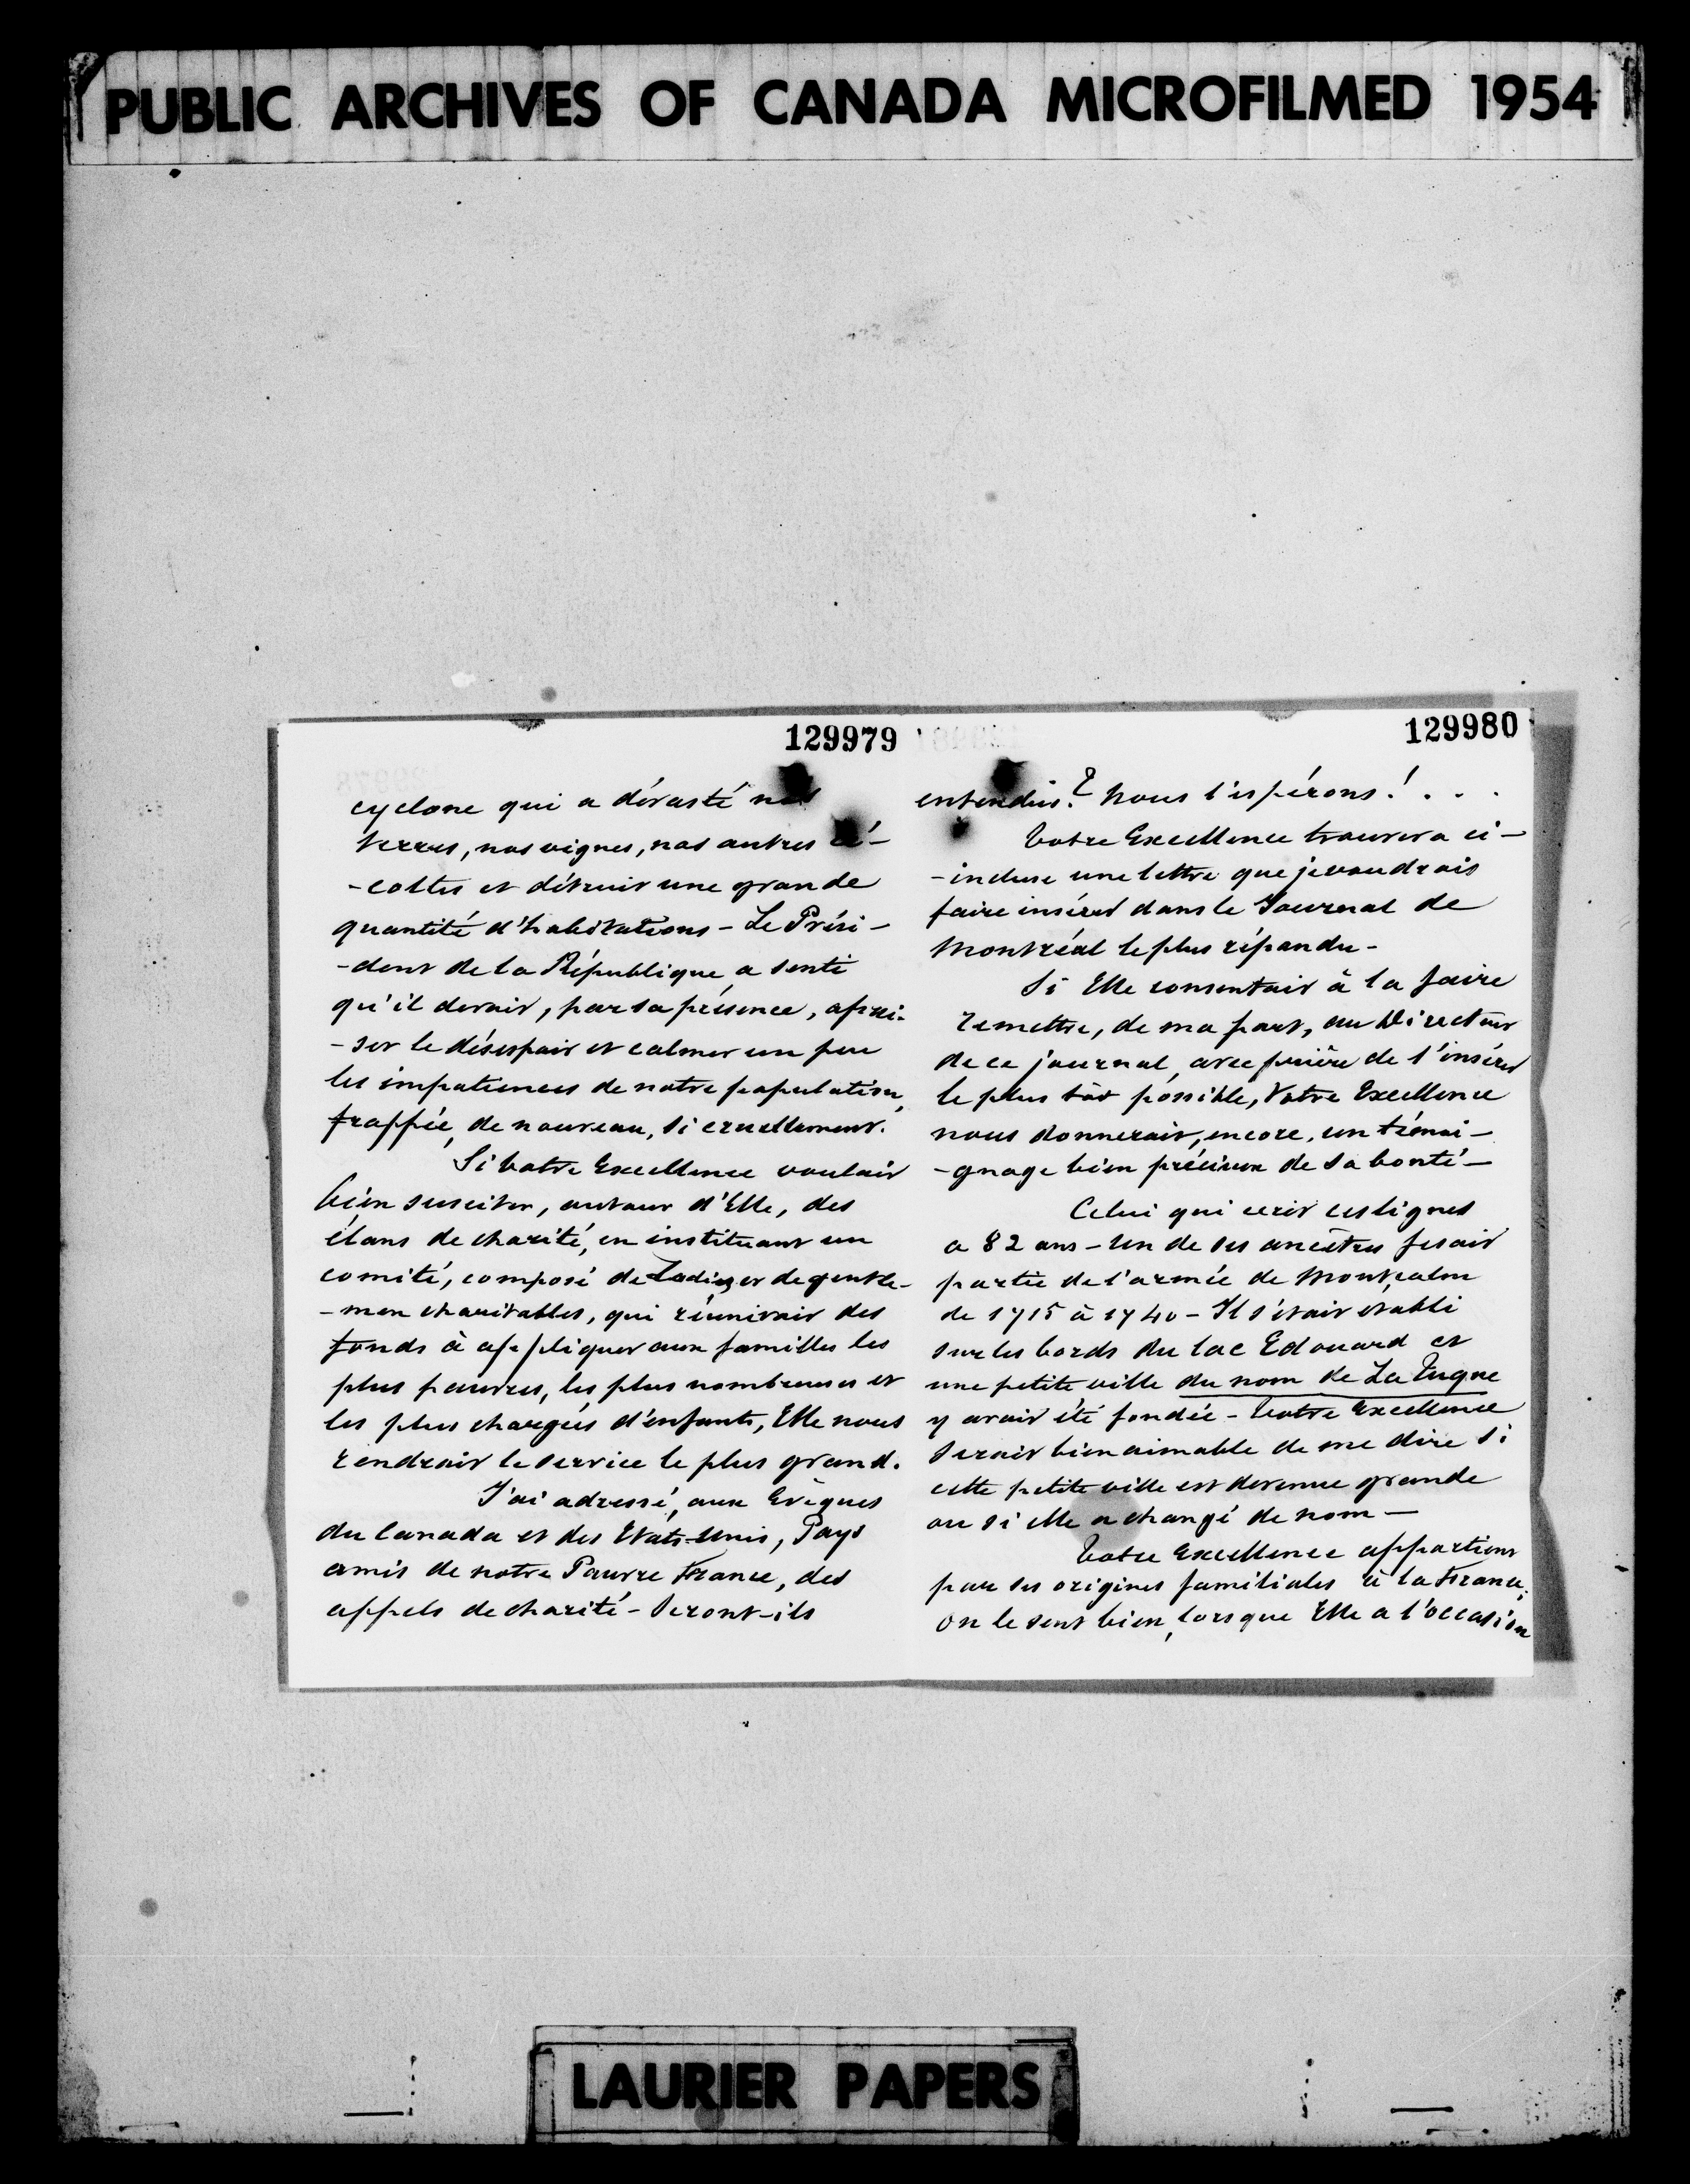 PUBLIC ARCHIVES OF CANADA MICROFILMED 1954
129979
cyclone qui a dévasté nos
terres, nos vignes, nos autres ré-
-coltes et détruit une grande
quantité d'habitations - Le Prési-
-dent de la République a senti
qu'il devait, par sa présence, apai-
-ser le désespoir et calmer un peu
les impatiences de notre population,
frappée, de nouveau, si cruellement.
Si Votre Excellence voulait
bien susciter, autour d'Elle, des
élans de charité, en instituant un
comité, composé de Ladies et de gentle-
-men charitables, qui réunirait des
fonds à appliquer aux familles les
plus pauvres, les plus nombreuses et
les plus chargées d'enfants, Elle nous
rendrait le service le plus grand.
J'ai adressé, aux Evêques
du Canada et des Etats-Unis, Pays
amis de notre Pauvre France, des
appels de charité - Seront-ils
129980
entendus? Nous l'espérons! . . .
Votre Excellence trouvera ci-
-incluse une lettre que je voudrais
faire insérer dans le Journal de
Montréal le plus répandu -
Si Elle consentait à la faire
remettre, de ma part, au Directeur
de ce journal, avec prière de l'insérer
le plus tôt possible, Votre Excellence
nous donnerait, encore, un témoi-
-gnage bien précieux de sa bonté -
Celui qui ecrit ces lignes
a 82 ans - Un de ses ancêtres fesait
partie de l'armée de Montcalm
de 1715 à 1740 - Il s'était établi
sur les bords du lac Edouard et
une petite ville du nom de La Tuque
y avait été fondée - Votre Excellence
serait bien aimable de me dire si
cette petite ville est devenue grande
ou si elle a changé de nom -
Votre Excellence appartient
par ses origines familiales à la France;
On le sent bien, lorsque Elle a l'occasion
LAURIER PAPERS